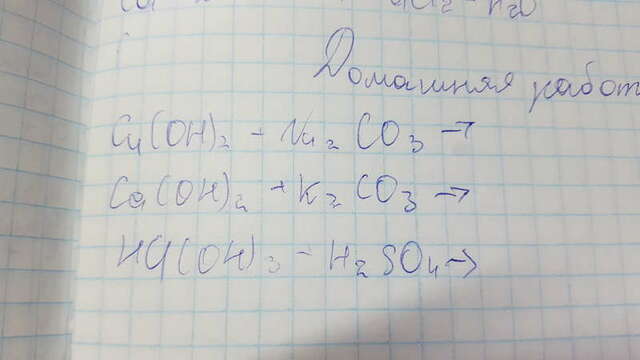 Домашняя работ
Cu(OH)₂ + Na₂CO₃ →
Ca(OH)₂ + K₂CO₃ →
HCl(OH)₃ + H₂SO₄ →